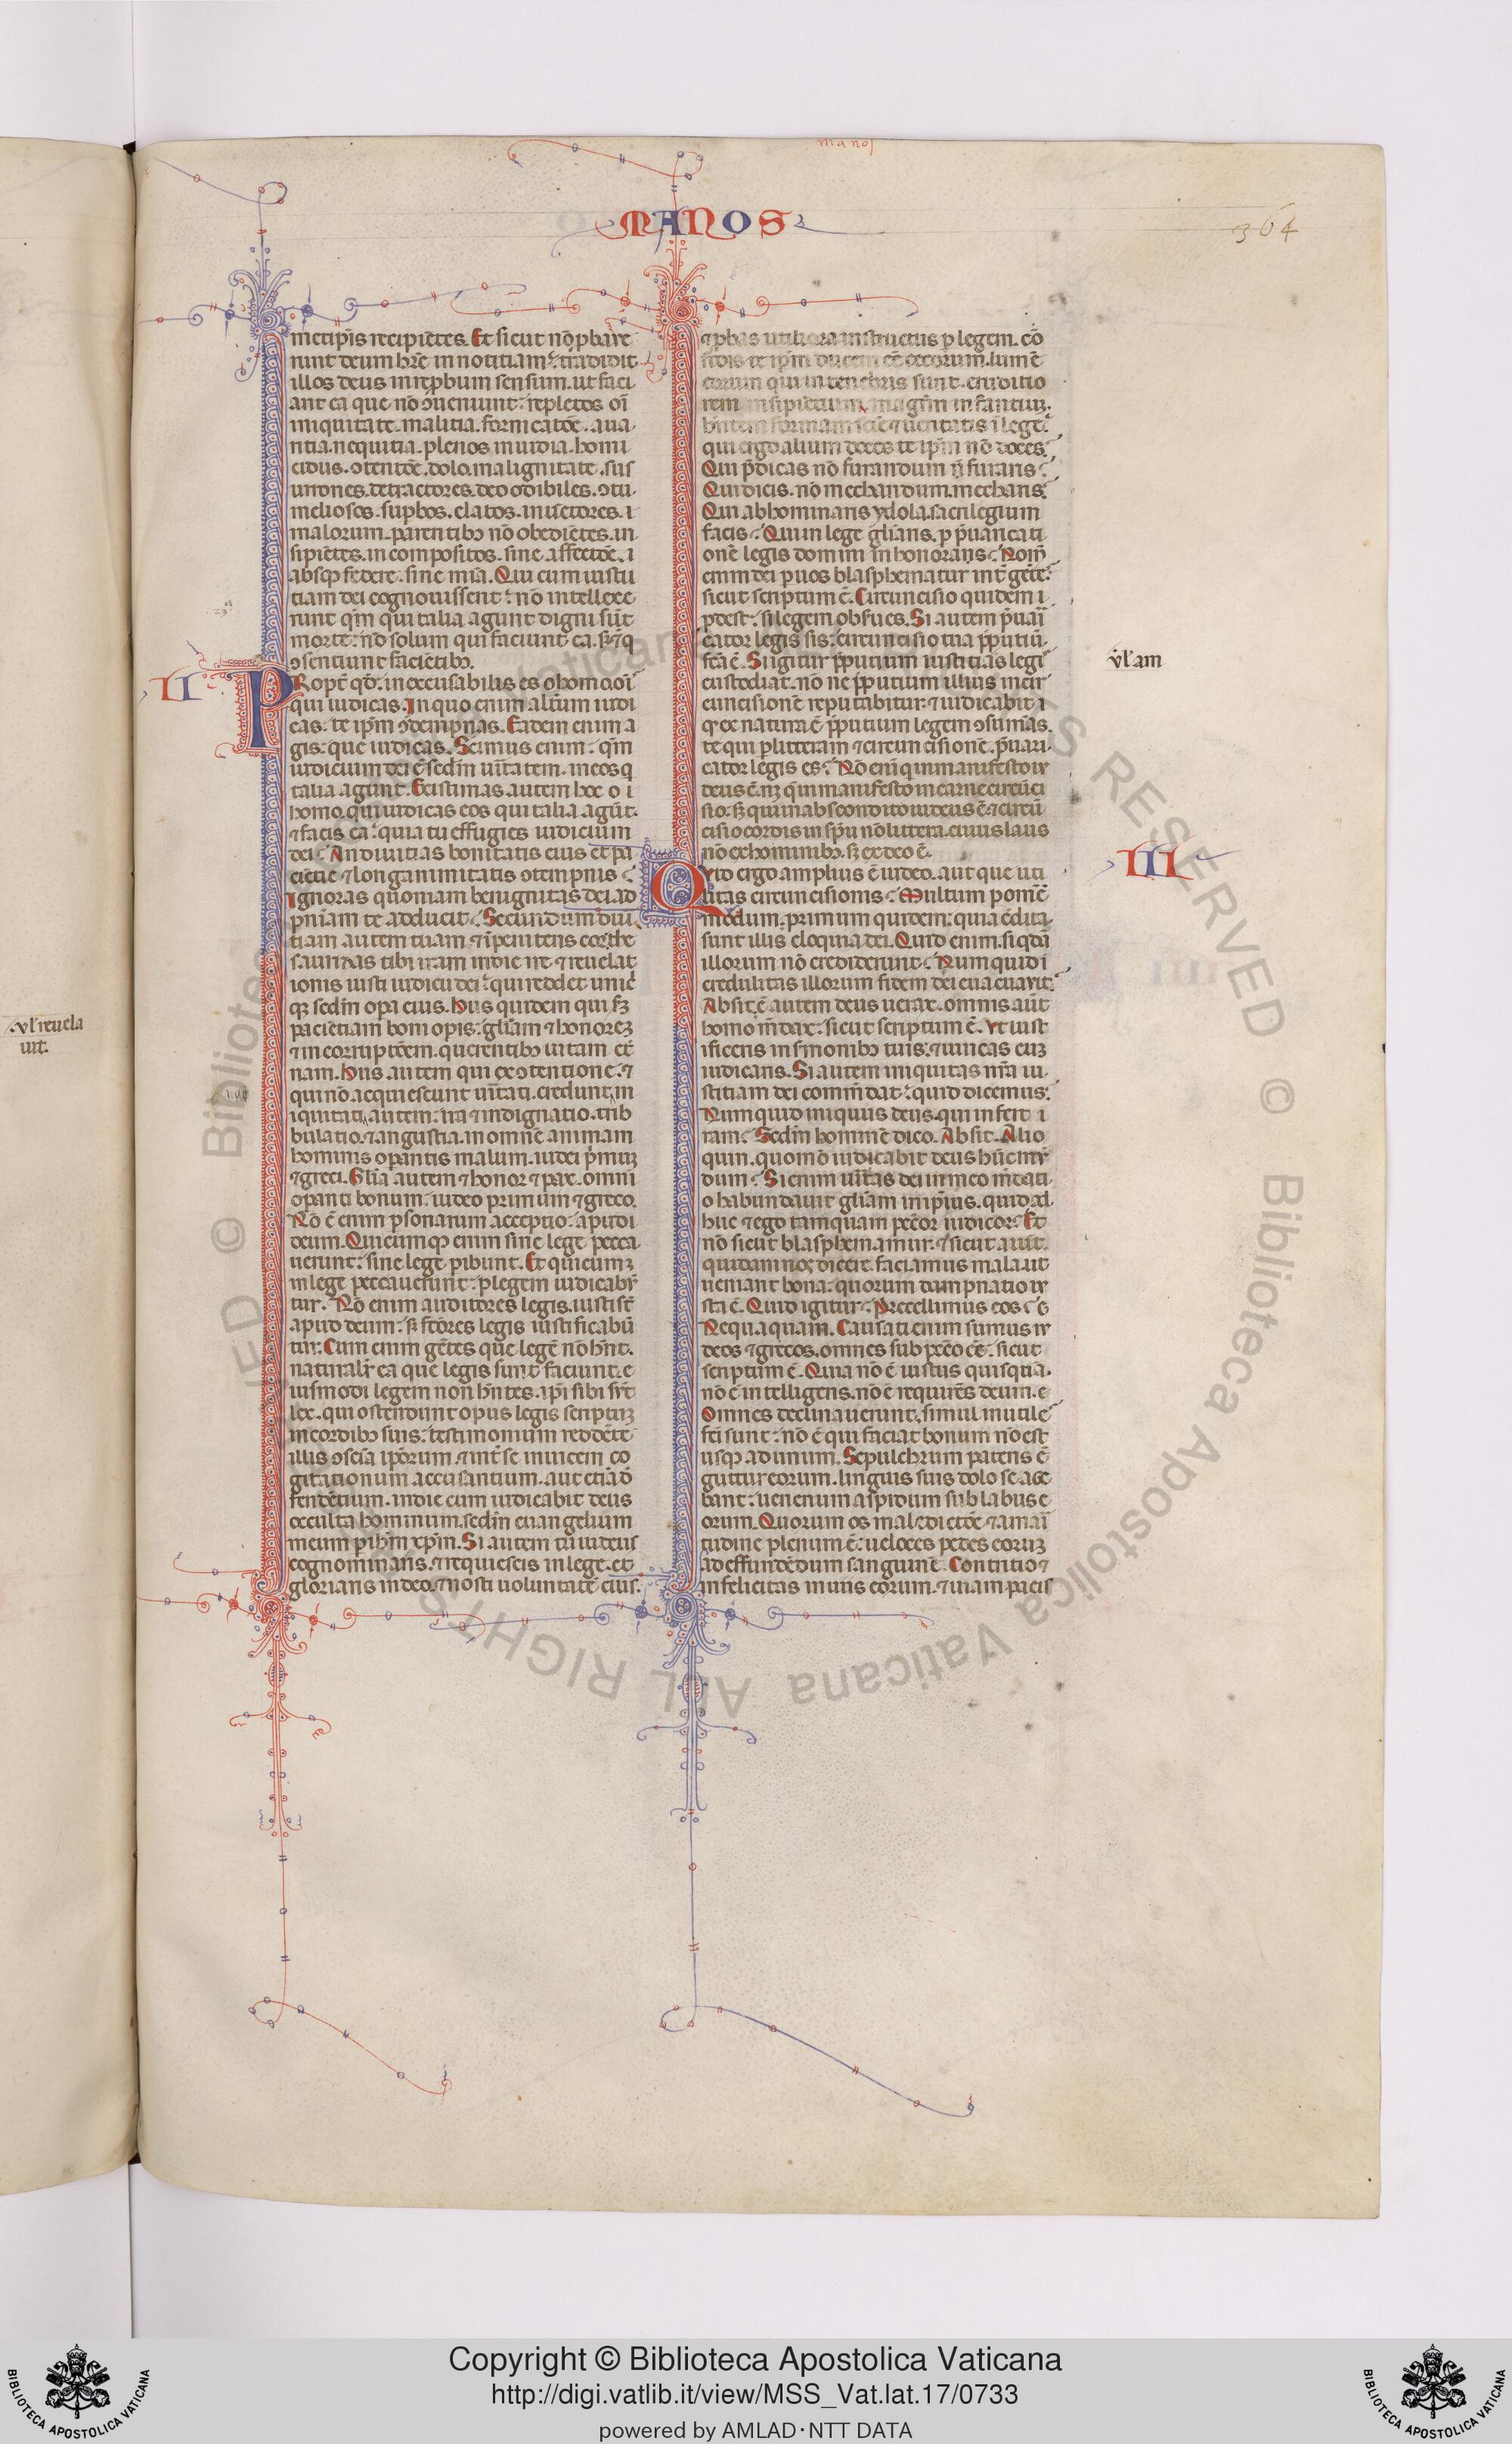 manos
MANOS
364
in metip̄is recipiētes. Et sicut nō ꝓbaue
runt deum hr̄e in notitiam: tradidit
illos deus in rep̱bum sensum. ut faci
ant ea que nō ↄueniunt: repletos oī
iniquitate. malitia. fornicatōe. aua
ritia. nequitia. plenos inuidia. homi
cidiis. ↄtentōe. dolo. malignitate. sus
urrones. detractores. deo odibiles. ↄtu
meliosos. suꝑbos. elatos. inuētores. i
malorum. parentibꝫ nō obediētes. in
sipiētes. incompositos. sine affectōe. i
absqꝫ federe. sine mīa. Qui cum iusti
tiam dei cognouissent: nō intellexe
runt qm̄ qui talia agunt digni sūt
morte: nō solum qui faciunt ea. sꝫ ⁊ q̄
ↄsentiunt faciētibꝫ.
II
PRopt̄ qd̄. inexcusabilis es o homo. oī
qui iudicas. In quo enim alt̄um iudi
cas. te ip̄m ↄdempnas. Eadem enim a
gis: que iudicas. Scimus enim: qm̄
iudicium dei ē sedm̄ uītatem. in eos q̄
talia agunt. Existimas autem hoc o i
homo. qui iudicas eos qui talia agūt.
⁊ facis ea: quia tu effugies iudicium
dei: An diuitias bonitatis eius et pa
ciētie ⁊ longanimitatis ↄtempnis:
Ignoras quoniam benignitas dei ad
pn̄iam te adducit: Secundum duri
tiam autem tuam ⁊ īpenitens cor. the
saurizas tibi iram in die ire ⁊ reuelat
ionis iusti iudicii dei: qui reddet unic̄
qꝫ sedm̄ opa eius. Hiis quidem qui sꝫ
paciētiam boni opis: gl̄iam ⁊ honorē
⁊ incorruptōem. querentibꝫ uitam et̄
nam. Hiis autem qui ex ↄtentione. ⁊
qui nō acquiescunt uītati. credunt in
iquitati autem: ira ⁊ indignatio. trib
bulatio. ⁊ angustia. in omnē animam
hominis opantis malum. iudei pīmū
⁊ greci. Gl̄ia autem ⁊ honor ⁊ pax. omni
opanti bonum: iudeo primum ⁊ greco.
Nō ē enim ꝑsonarum acceptio: apud i
deum. Quicumqꝫ enim sine lege pecca
uerunt: sine lege ꝑibunt. Et quicumqꝫ
in lege peccauerunt: ꝑ legem iudicabū
tur. Nō enim auditores legis. iusti sūt
apud deum: sꝫ fc̄ores legis iustificabū
tur: Cum enim gētes que legē nō hn̄t.
naturalr̄ ea que legis sunt faciunt: e
iusmodi legem non hn̄tes. ip̄i sibi sūt
lex. qui ostendunt opus legis scriptū
in cordibꝫ suis: testimonium reddēte
illis ↄscīa ip̄orum. ⁊ int̄ se inuicem co
gitationum accusantium. aut etiā d̄
fendētium. in die cum iudicabit deus
occulta hominum. sedm̄ euangelium
meum ꝑ ih̄m xp̄m. Si autem tu iudeus
cognominaris. ⁊ requiescis in lege. et
gloriaris in deo. ⁊ nosti uoluntatē eius.
⁊ ꝓbas utiliora instructus ꝑ legem. cō
fidis te ip̄m ducem eē cecorum. lumē
eorum qui in tenebris sunt. eruditio
rem insipiētium. magr̄m infantium.
hn̄tem formam scīe ⁊ ueritatis ī lege:
qui ergo alium doces te ip̄m nō doces:
Qui p̄dicas nō furandum q̄ furaris:
Qui dicis. nō mechandum. mecharis:
Qui abhominaris ydola. sacrilegium
facis: Qui in lege gl̄iaris. ꝑ p̄uaricati
onē legis domini inhonoras: Nom̄
enim dei ꝑ uos blasphematur int̄ gētes:
sicut scriptum ē. Circuncisio quidem i
ꝓdest: si legem obserues. Si autem p̄uaī
cator legis sis: circuncisio tua p̄putiū
fc̄a ē. Si igitur p̄putium iustitias legi
custodiat. nō ne p̄putium illius in cir
cuncisionē reputabitur: ⁊ iudicabit i
qꝫ ex natura ē p̄putium legem ↄsumās.
te qui ꝑ litteram ⁊ circuncisionē. p̄uari
cator legis es: Nō eni qui in manifesto iu
deus ē. neqꝫ qui in manifesto in carne circūci
sio: sꝫ qui in abscondito iudeus ē. ⁊ circū
cisio cordis in sp̄u nō littera. cuius laus
nō ex hominibꝫ. sꝫ ex deo ē.
III
QVid ergo amplius ē iudeo. aut que uti
litas circuncisionis: Multum ꝑ omnē
modum. primum quidem: quia c̄dita
sunt illis eloquia dei. Quid enim. si qdā
illorum nō crediderunt: Numquid i
credulitas illorum fidem dei euacuauit:
Absit. ē autem deus uerax. omnis aūt
homo m̄dax: sicut scriptum ē. Vt iust
ificeris in sermonibꝫ tuis: ⁊ uincas cum
iudicaris. Si autem iniquitas nr̄a iu
stitiam dei comm̄dat: quid dicemus:
Numquid iniquus deus. qui infert i
ram: Sedm̄ hominē dico. Absit. Alio
quin. quomō iudicabit deus hūc mū
dum: Si enim uītas dei in meo m̄dati
o habundauit gl̄iam in ip̄ius. quid ad
huc ⁊ ego tamquam pecc̄or iudicor: Et
nō sicut blasphemamur. ⁊ sicut aiūt
quidam nos dicere. faciamus mala ut
ueniant bona: quorum dampnatio iu
sta ē. Quid igitur: Precellimus eos:
Nequaquam. Causati enim sumus iu
deos ⁊ grecos. omnes sub pecc̄o eē: sicut
scriptum ē. Quia nō ē iustus quisquam.
nō ē intelligens. nō ē requirēs deum. e
Omnes declinauerunt. simul inutile
fc̄i sunt: nō ē qui faciat bonum nō est
usqꝫ ad unum. Sepulchrum patens ē
guttur eorum. linguis suis dolose age
bant: uenenum aspidum sub labiis e
orum. Quorum os maledictōe ⁊ amari
tudine plenum ē: ueloces pedes eorum
ad effundēdum sanguinē. Contritio ⁊
infelicitas in uiis eorum. ⁊ uiam pacis
vl̄ am
.vl̄ reuela
uit.
Copyright © Biblioteca Apostolica Vaticana
http://digi.vatlib.it/view/MSS_Vat.lat.17/0733
powered by AMLAD·NTT DATA
BIBLIOTECA APOSTOLICA VATICANA
BIBLIOTECA APOSTOLICA VATICANA
© Biblioteca Apostolica Vaticana ALL RIGHTS RESERVED